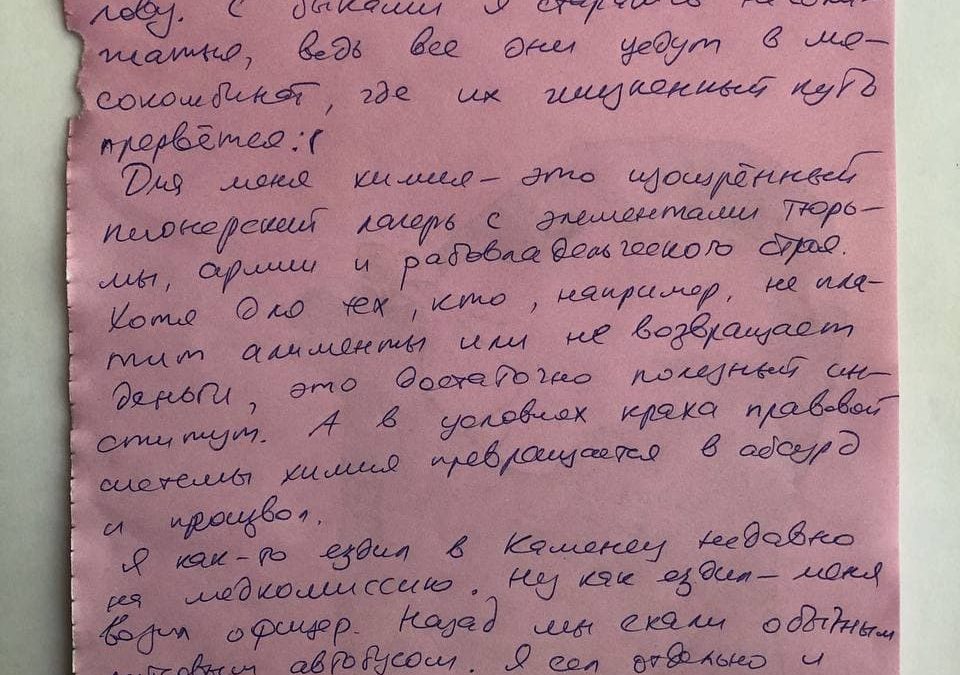 лову. С быками я стараюсь не
жаться, ведь все они уедут в мя-
сокомбинат, где их жизненный путь
прервётся:(
Для меня химия – это изощрённый
пионерский лагерь с элементами тюрь-
мы, армии и рабовладельческого строя.
Хотя для тех, кто, например, не пла-
тит алименты или не возвращает
деньги, это достаточно полезный ин-
ститут. А в условиях краха правовой
системы химия превращается в абсурд
и произвол.
Я как-то ездил в Каменец недавно
на медкомиссию. Ну как ездил – меня
возил офицер. Назад мы ехали обычным
автобусом. Я сел отдельно и